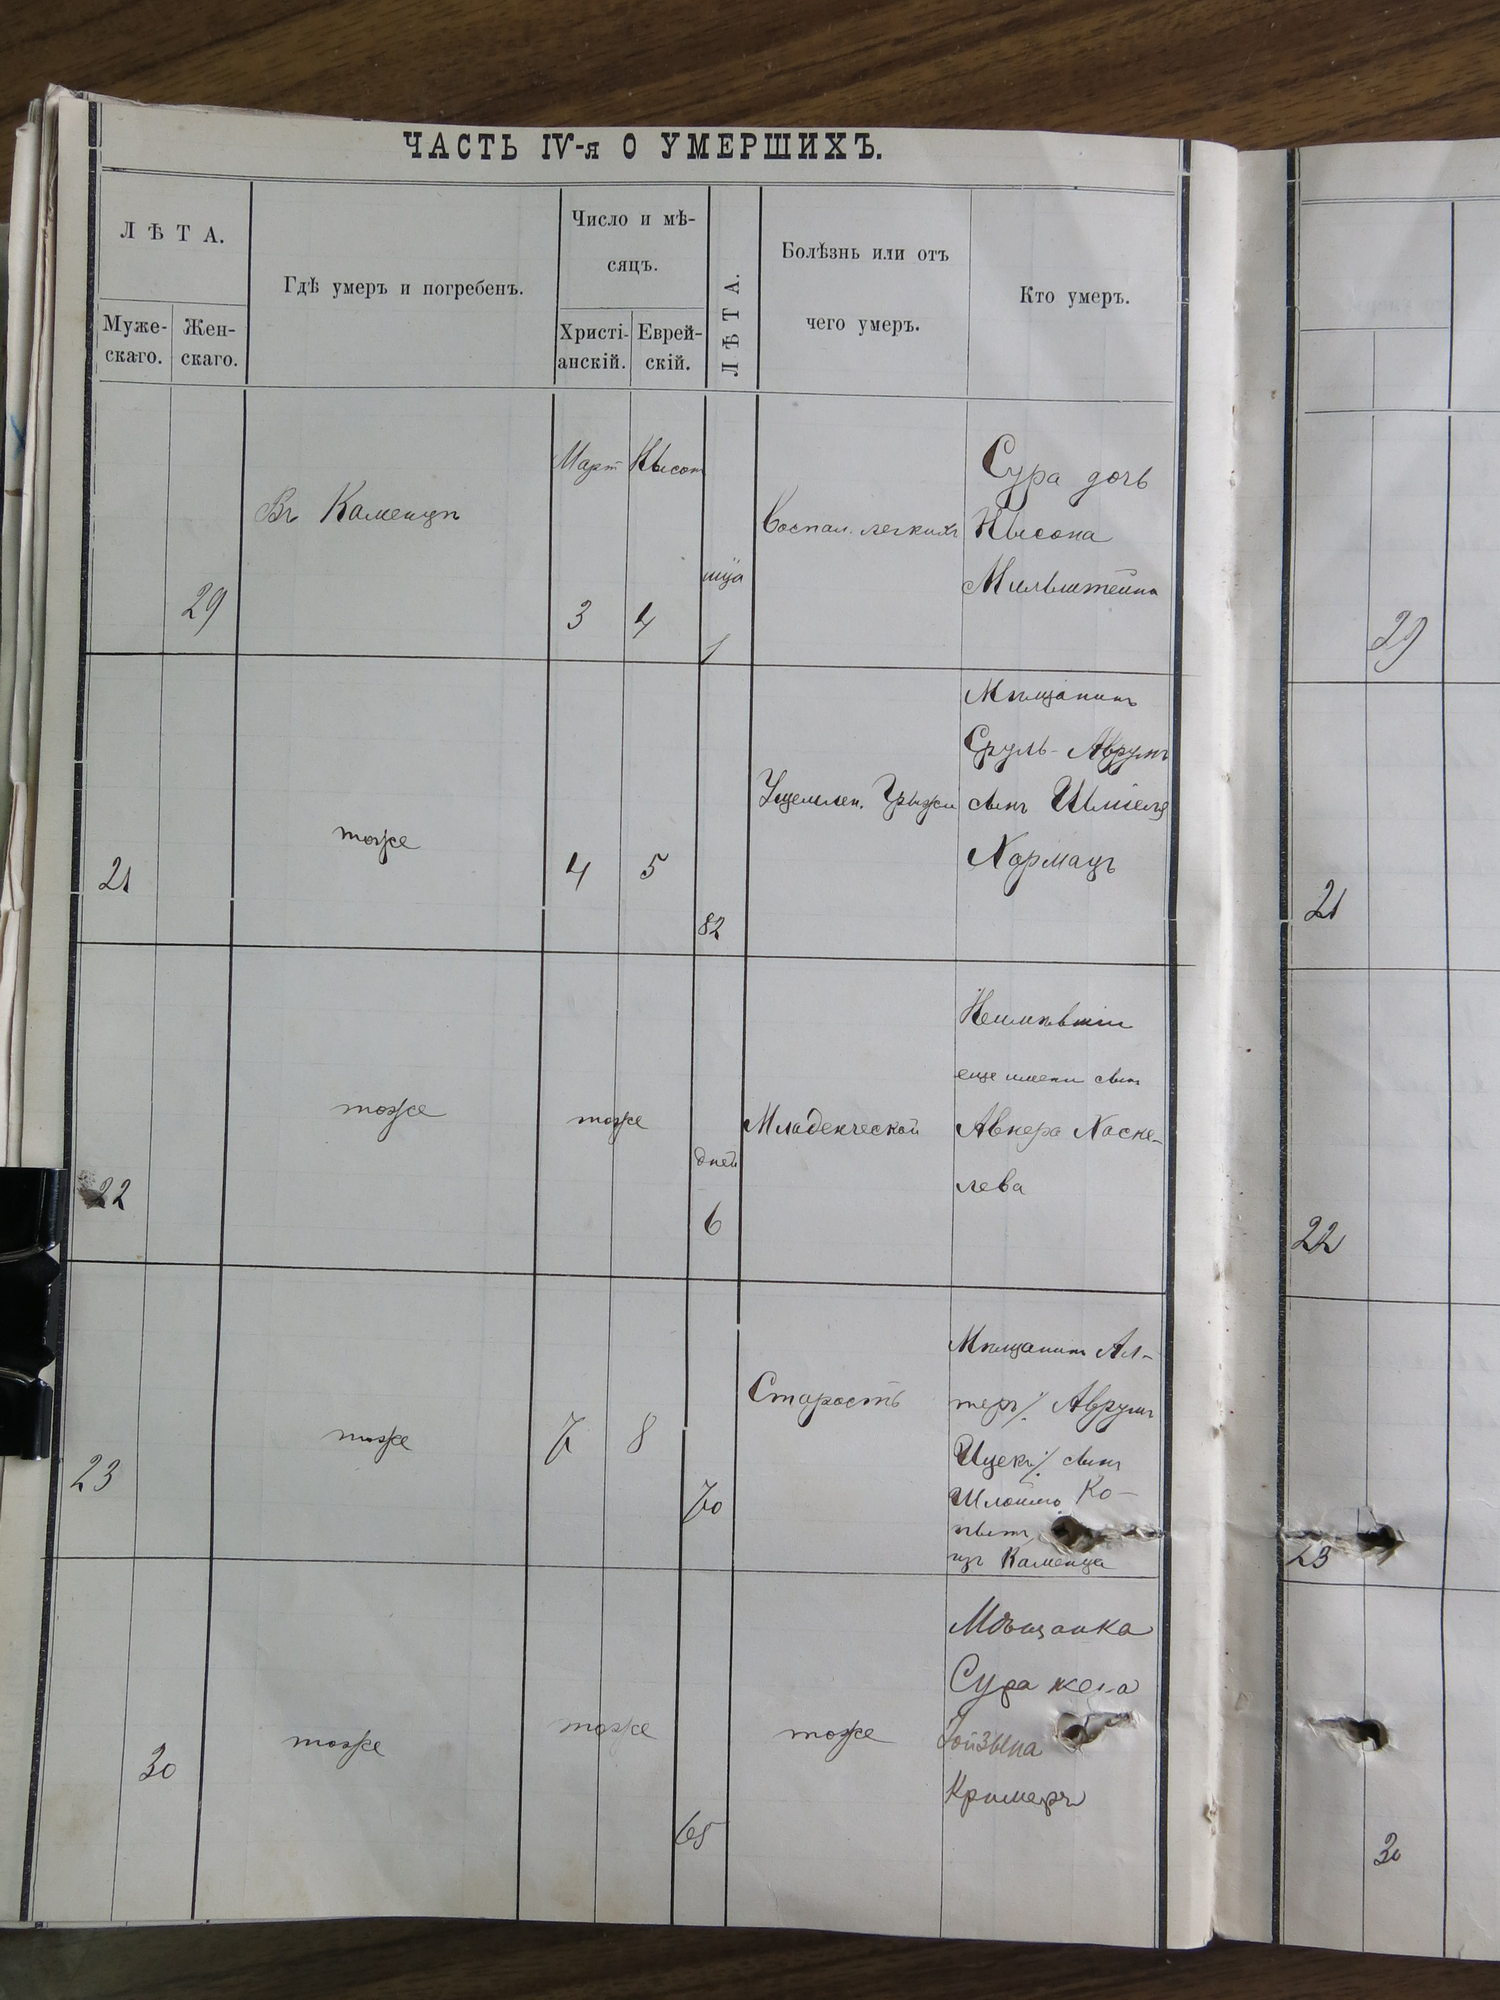 ЧАСТЬ IV-я О УМЕРШИХЪ.
ЛѢТА.
Муже-
скаго.
Жен-
скаго.
Гдѣ умеръ и погребенъ.
Число и мѣ-
сяцъ.
Христі-
анскій.
Еврей-
скій.
ЛѢТА.
Болѣзнь или отъ
чего умеръ.
Кто умеръ.
29
Въ Каменцѣ
Март
3
Нысон
4
1
Воспал. легкихъ
Сура дочь
Нысона
Мильштейна
29
21
тоже
4
5
82
Ущемлен. Грыжи
Мѣщанинъ
Сруль-Аврумъ
сынъ Шмиеля
Хармацъ
21
22
тоже
тоже
дней
6
Младенческой
Неимѣвшій
еще имени сынъ
Авнера Хаске-
лева
22
23
тоже
7
8
70
Старость
Мѣщанинъ Ал-
теръ /: Аврумъ
Ицекъ :/ сынъ
Шлоймо Ко-
изъ Каменца
23
30
тоже
тоже
65
тоже
Мѣщанка
Сура жена
Кримеръ
30